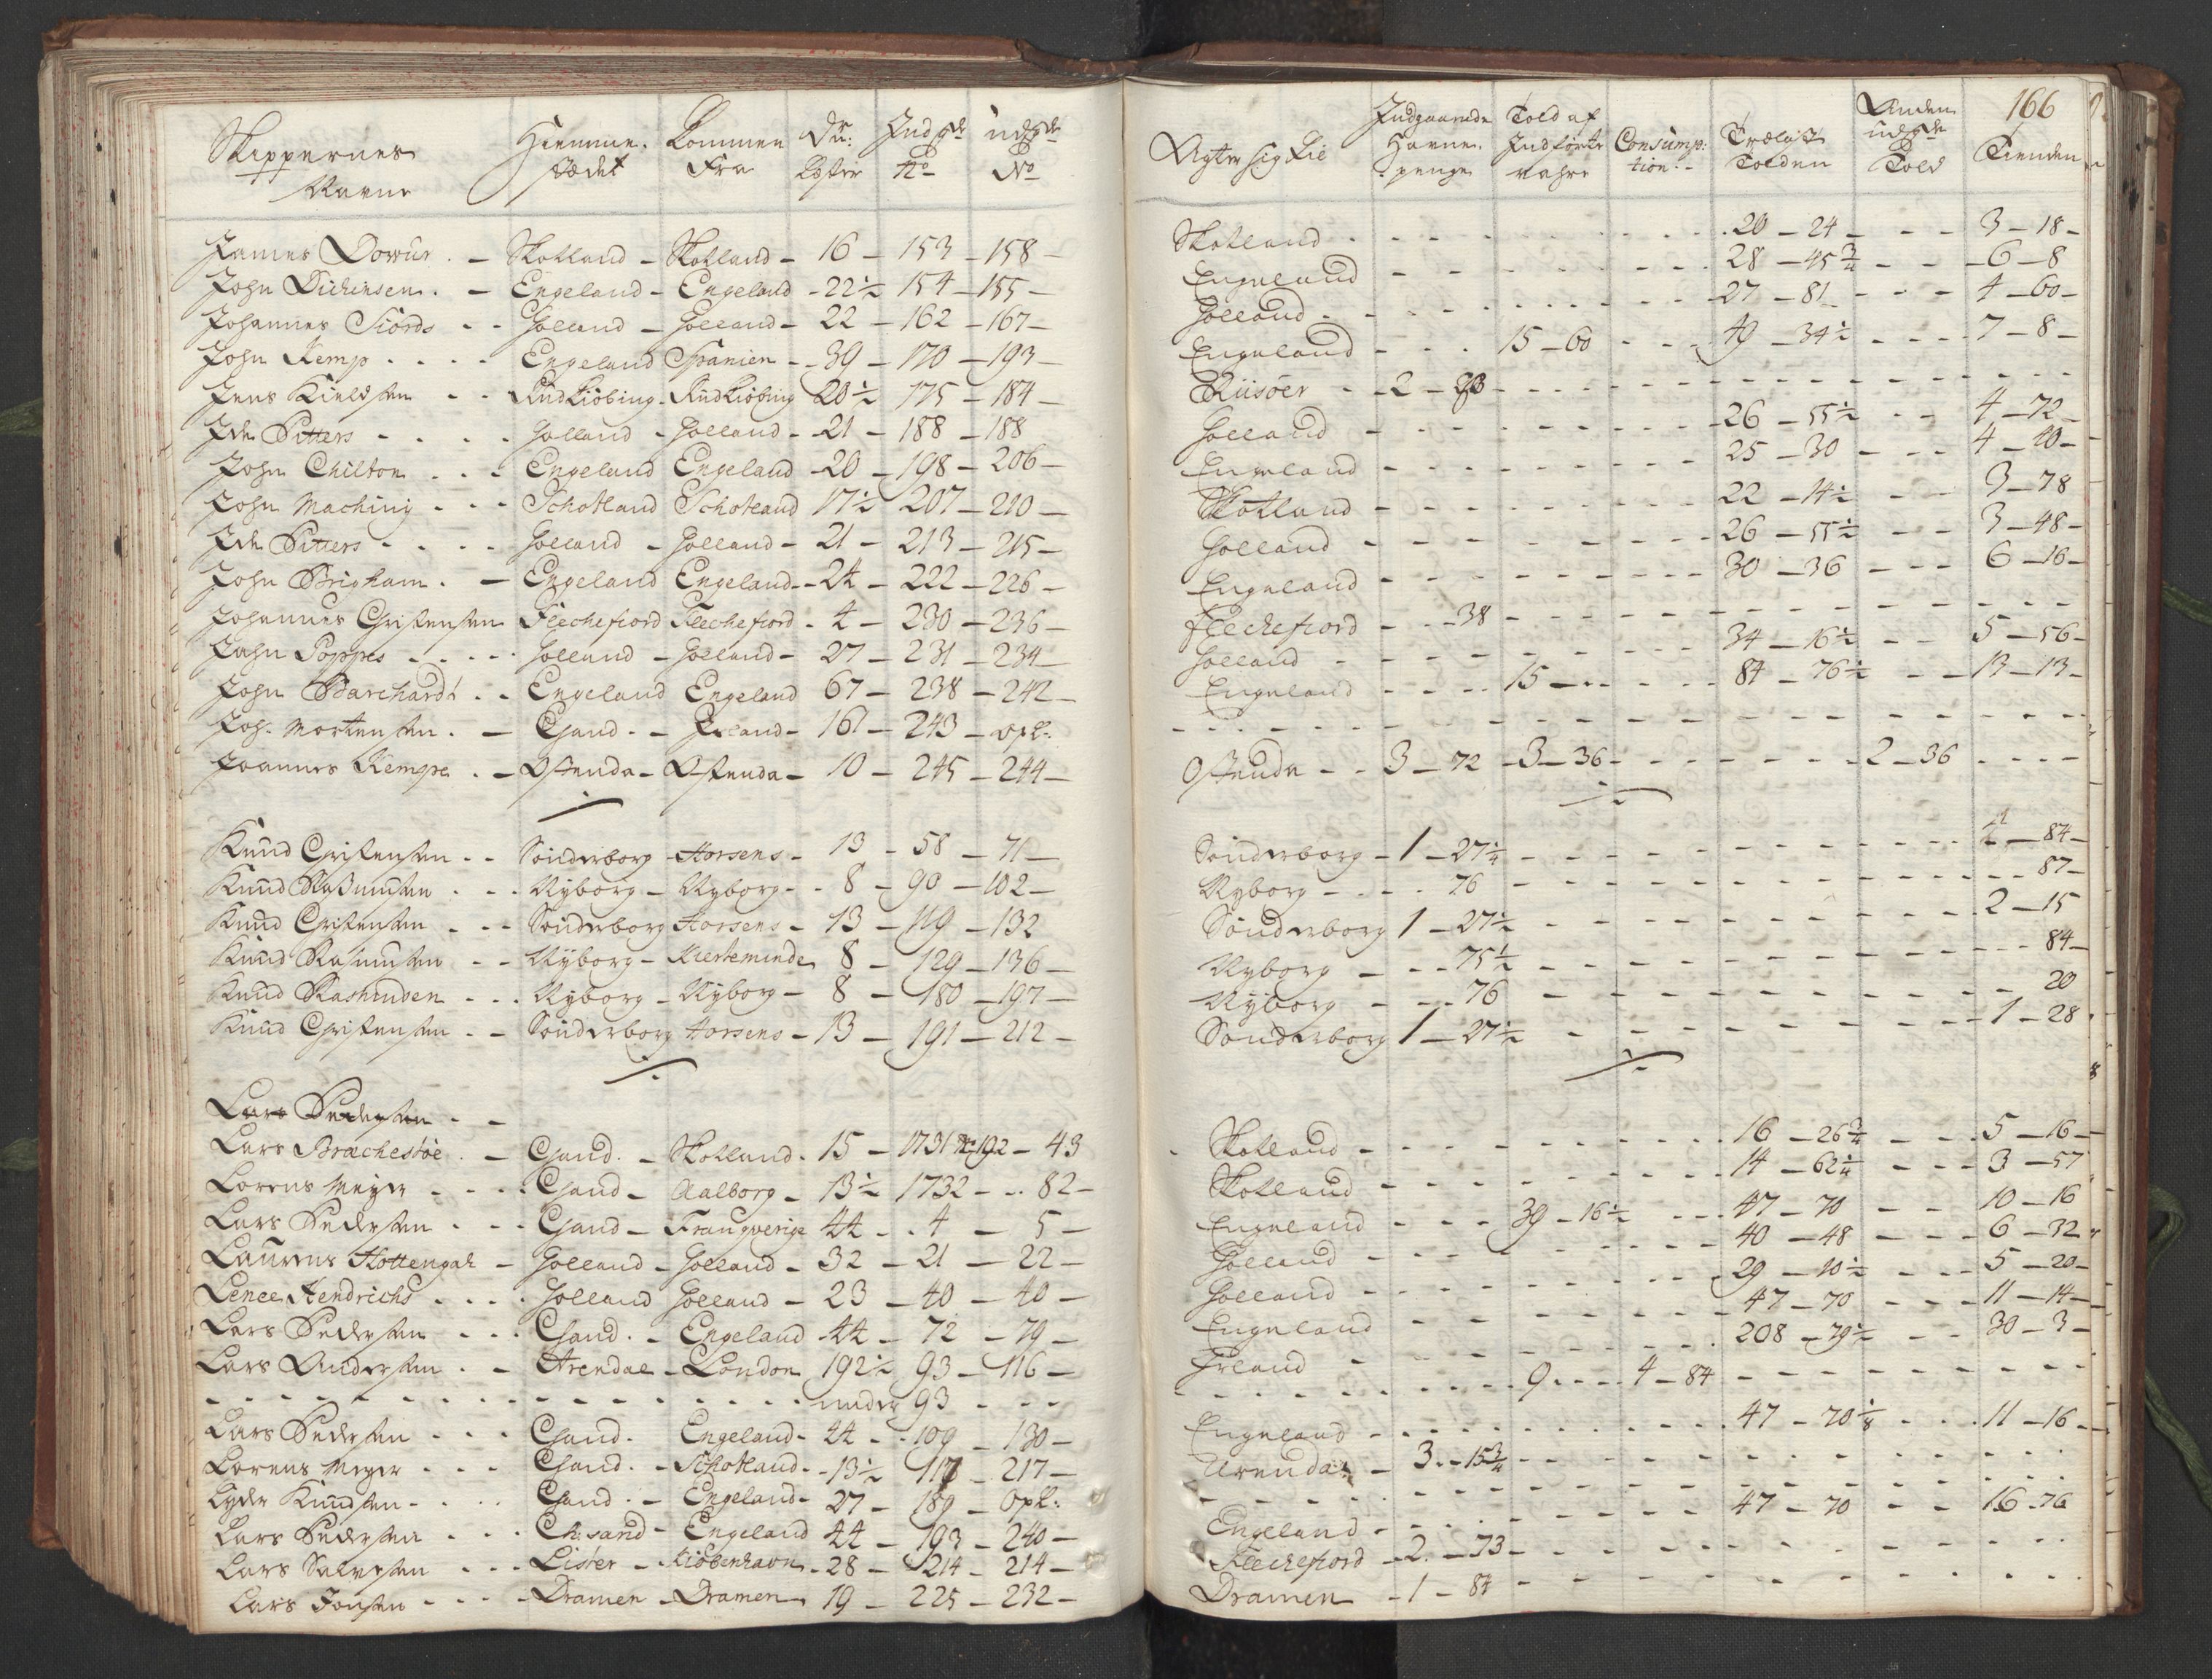 Skippernes Navne | Hiemme stædet | Kommen Fra | Dr: Læster | Indgde No | udgde No
James Dowur | Skotland | Skotland | 16 | 153 | 158
John Dichensen | Engeland | Engeland | 22½ | 154 | 155
Johannes Siörds | Holland | Holland | 22 | 162 | 167
John Kemp | Engeland | Spanien | 39 | 170 | 193
Jens Kieldsen | Rudkiöbing | Rudkiöbing | 20½ | 175 | 184
Ide Pitters | Holland | Holland | 21 | 188 | 188
John Chilton | Engeland | Engeland | 20 | 198 | 206
John Maching | Schotland | Schotland | 17½ | 207 | 210
Ide Pitters | Holland | Holland | 21 | 213 | 215
John Brigham | Engeland | Engeland | 24 | 222 | 226
Johannes Christensen | Flechefiord | Flechefiord | 4 | 230 | 236
Jahn Poppes | Holland | Holland | 27 | 231 | 234
John Barchardt | Engeland | Engeland | 67 | 238 | 242
Joh. Mortensen | Csand | Irland | 161 | 243 | opl:
Joannes Kempe | Ostende | Ostende | 10 | 245 | 244
Knud Christensen | Sönderborg | Horsens | 13 | 58 | 71
Knud Rasmusen | Nyborg | Nyborg | 8 | 90 | 102
Knud Christensen | Sönderborg | Horsens | 13 | 119 | 132
Knud Rasmusen | Nyborg | Kierteminde | 8 | 129 | 136
Knud Rasmusen | Nyborg | Nyborg | 8 | 180 | 197
Knud Christensen | Sönderborg | Horsens | 13 | 191 | 212
Lars Pedersen
Lars Brachestöe | Csand. | Skotland | 15 | 1731 No 192 | 43
Lorens Meyer | Csand | Aalborg | 13½ | 1732 | 82
Lars Pedersen | Csand | Frangverige | 44 | 4 | 5
Laurens Hottengah | Holland | Holland | 32 | 21 | 22
Lenee Hendrichs | Holland | Holland | 23 | 40 | 40
Lars Pedersen | Csand. | Engeland | 44 | 72 | 79
Lars Andersen | Arendal | London | 192½ | 93 | 116
under 93
Lars Pedersen | Csand. | Engeland | 44 | 109 | 130
Lorens Meyer | Csand. | Schotland | 13½ | 117 | 217
Lyder Knudsen | Csand. | Engeland | 27 | 189 | Opl:
Lars Pedersen | Ch:sand | Engeland | 44 | 193 | 240
Lars Salvesen | Lister | Kiöbenhavn | 28 | 214 | 214
Lars Jonsen | Dramen | Dramen | 19 | 225 | 232
166
Agter sig Til | Indgaaende Havne penge | Told af Indförte vahre | Consump: tion | Trælast Tolden | Anden udgde Told | Tienden
Skotland | 20 - 24 | 3 - 18
Engeland | 28 - 45¾ | 6 - 8
Holland | 27 - 81 | 4 - 60
Engeland | 15 - 60 | 49 - 34½ | 7 - 8
Riisöer | 2 - 23
Holland | 26 - 55½ | 4 - 72
Engeland | 25 - 30 | 4 - 40
Skotland | 22 - 14½ | 3 - 78
Holland | 26 - 55½ | 3 - 48
Engeland | 30 - 36 | 6 - 16
Flechefiord | 38
Holland | 34 - 16½ | 5 - 56
Engeland | 15 | 84 - 76½ | 13 - 13
Ostende | 3 - 72 | 3 - 36 | 2 - 36
Sönderborg | 1 - 27¼ | 1 - 84
Nyborg | 76 | 87
Sönderborg | 1 - 27½ | 2 - 15
Nyborg | 75½ | 84
Nyborg | 76 | 20
Sönderborg | 1 - 27½ | 1 - 28
Skotland | 16 - 26¾ | 5 - 16
Skotland | 14 - 62¼ | 3 - 57
Engeland | 39 - 16½ | 47 - 70 | 10 - 16
Holland | 40 - 48 | 6 - 32
Holland | 29 - 10½ | 5 - 20
Engeland | 47 - 70 | 11 - 14
Irland | 208 - 79½ | 30 - 3
9 | 4 - 84
Engeland | 47 - 70⅛ | 11 - 16
Arendal | 3 - 15¾
Engeland | 47 - 70 | 16 - 76
Flechefiord | 2 - 73
Dramen | 1 - 84